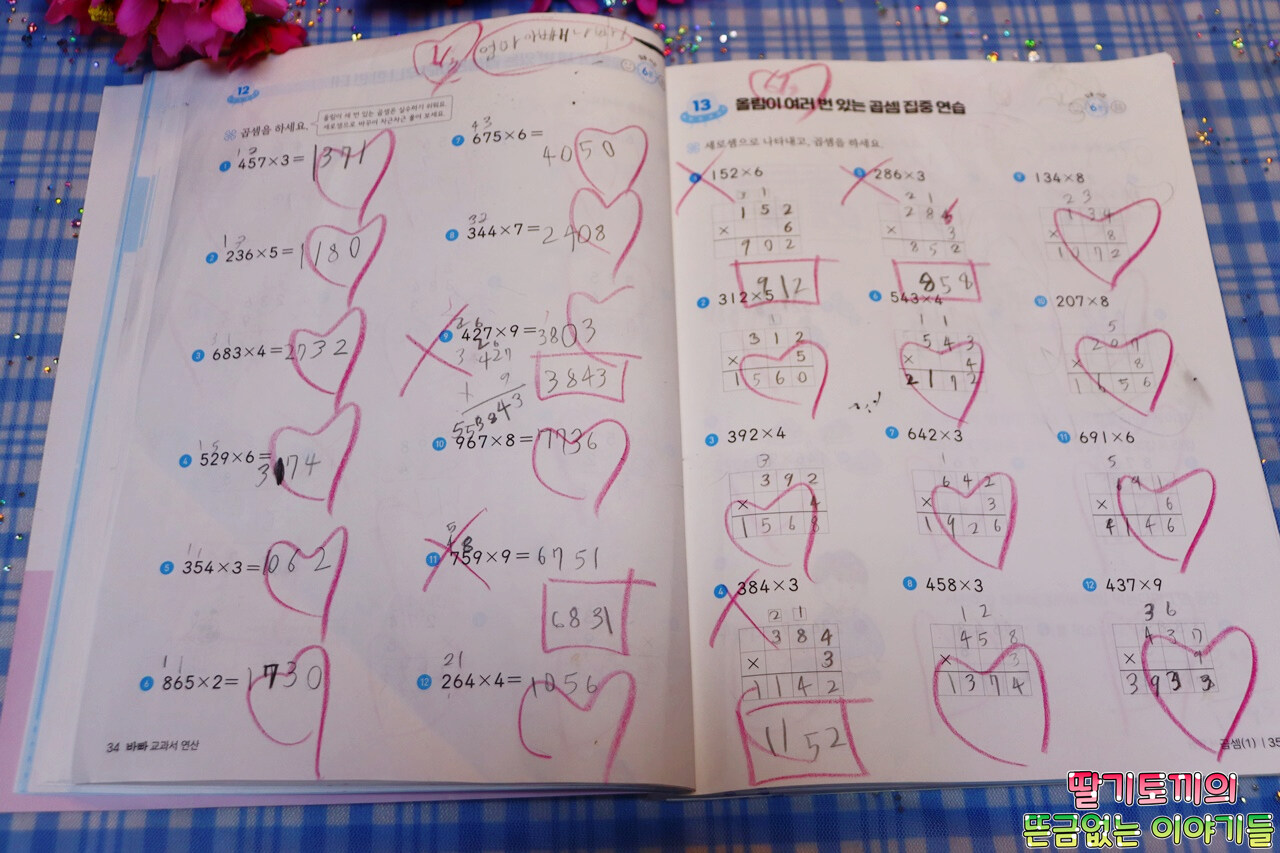 12
곱셈을 하세요.
올림이 세 번 있는 곱셈은 실수하기 쉬워요.
세로셈으로 바꾸어 차근차근 풀어 보세요.
1 2
1 457×3=1371
1 3
2 236×5=1180
3 1
3 683×4=2732
1 5
4 529×6=3174
1 1
5 354×3=1062
1 1
6 865×2=1730
4 3
7 675×6=
4050
32
8 344×7=2408
2 6
9 427×9=3803
3 2 6
427
9
3843
3843
10 967×8=7736
5
4 8
11 759×9=6751
6831
21
12 264×4=1056
34 바빠 교과서 연산
13 올림이 여러 번 있는 곱셈 집중 연습
6
세로셈으로 나타내고, 곱셈을 하세요.
152×6
3 1
1 5 2
× 6
9 0 2
912
2 312×5
1
3 1 2
× 5
1 5 6 0
3 392×4
3
3 9 2
× 4
1 5 6 8
4 384×3
2 1
3 8 4
× 3
1 1 4 2
1152
5 286×3
2 1
2 8 6
× 3
8 5 2
858
6 543×4
1 1
5 4 3
× 4
2 1 7 2
7 642×3
1
6 4 2
× 3
1 9 2 6
8 458×3
1 2
4 5 8
× 3
1 3 7 4
9 134×8
2 3
1 3 4
× 8
1 0 7 2
10 207×8
5
2 0 7
× 8
1 6 5 6
11 691×6
5
6 9 1
× 6
4 1 4 6
12 437×9
3 6
4 3 7
× 9
3 9 3 3
곱셈(1) | 35
딸기토끼의
뜬금없는 이야기들